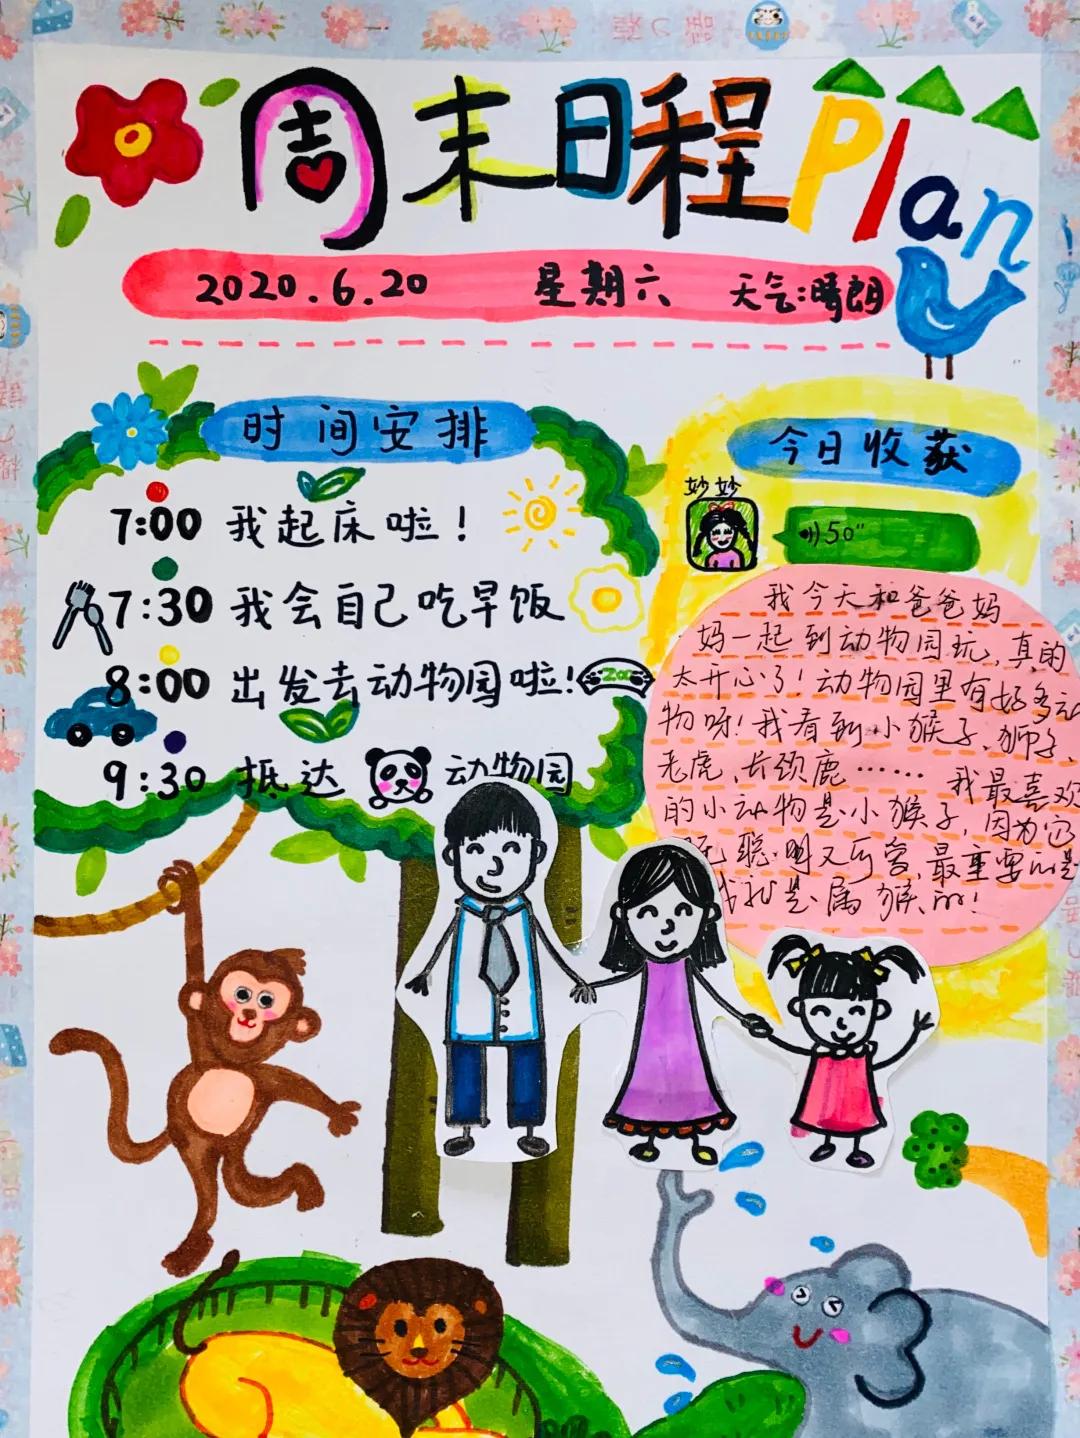 周末日程Plan
2020.6.20 星期六 天气:晴朗
时间安排
7:00 我起床啦!
7:30 我会自己吃早饭
8:00 出发去动物园啦!
ZOO
9:30 抵达 动物园
今日收获
妙妙
50"
我今天和爸爸妈
妈一起到动物园玩,真的
太开心了!动物园里有好多动
物呀!我看到小猴子、狮子、
老虎、长颈鹿…… 我最喜欢
的小动物是小猴子,因为它
既聪明又可爱,最重要的是
我就是属猴的!